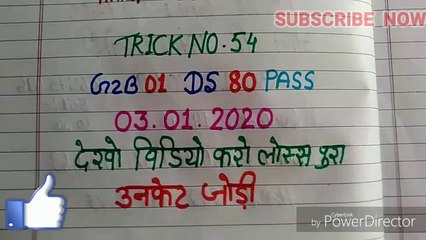 SUBSCRIBE NOW
TRICK NO. 54
GZB 01 DS 80 PASS
03.01.2020
देखो विडियो करो लोस्स पुरा
उनकेट जोड़ी
CyberLink
by PowerDirector